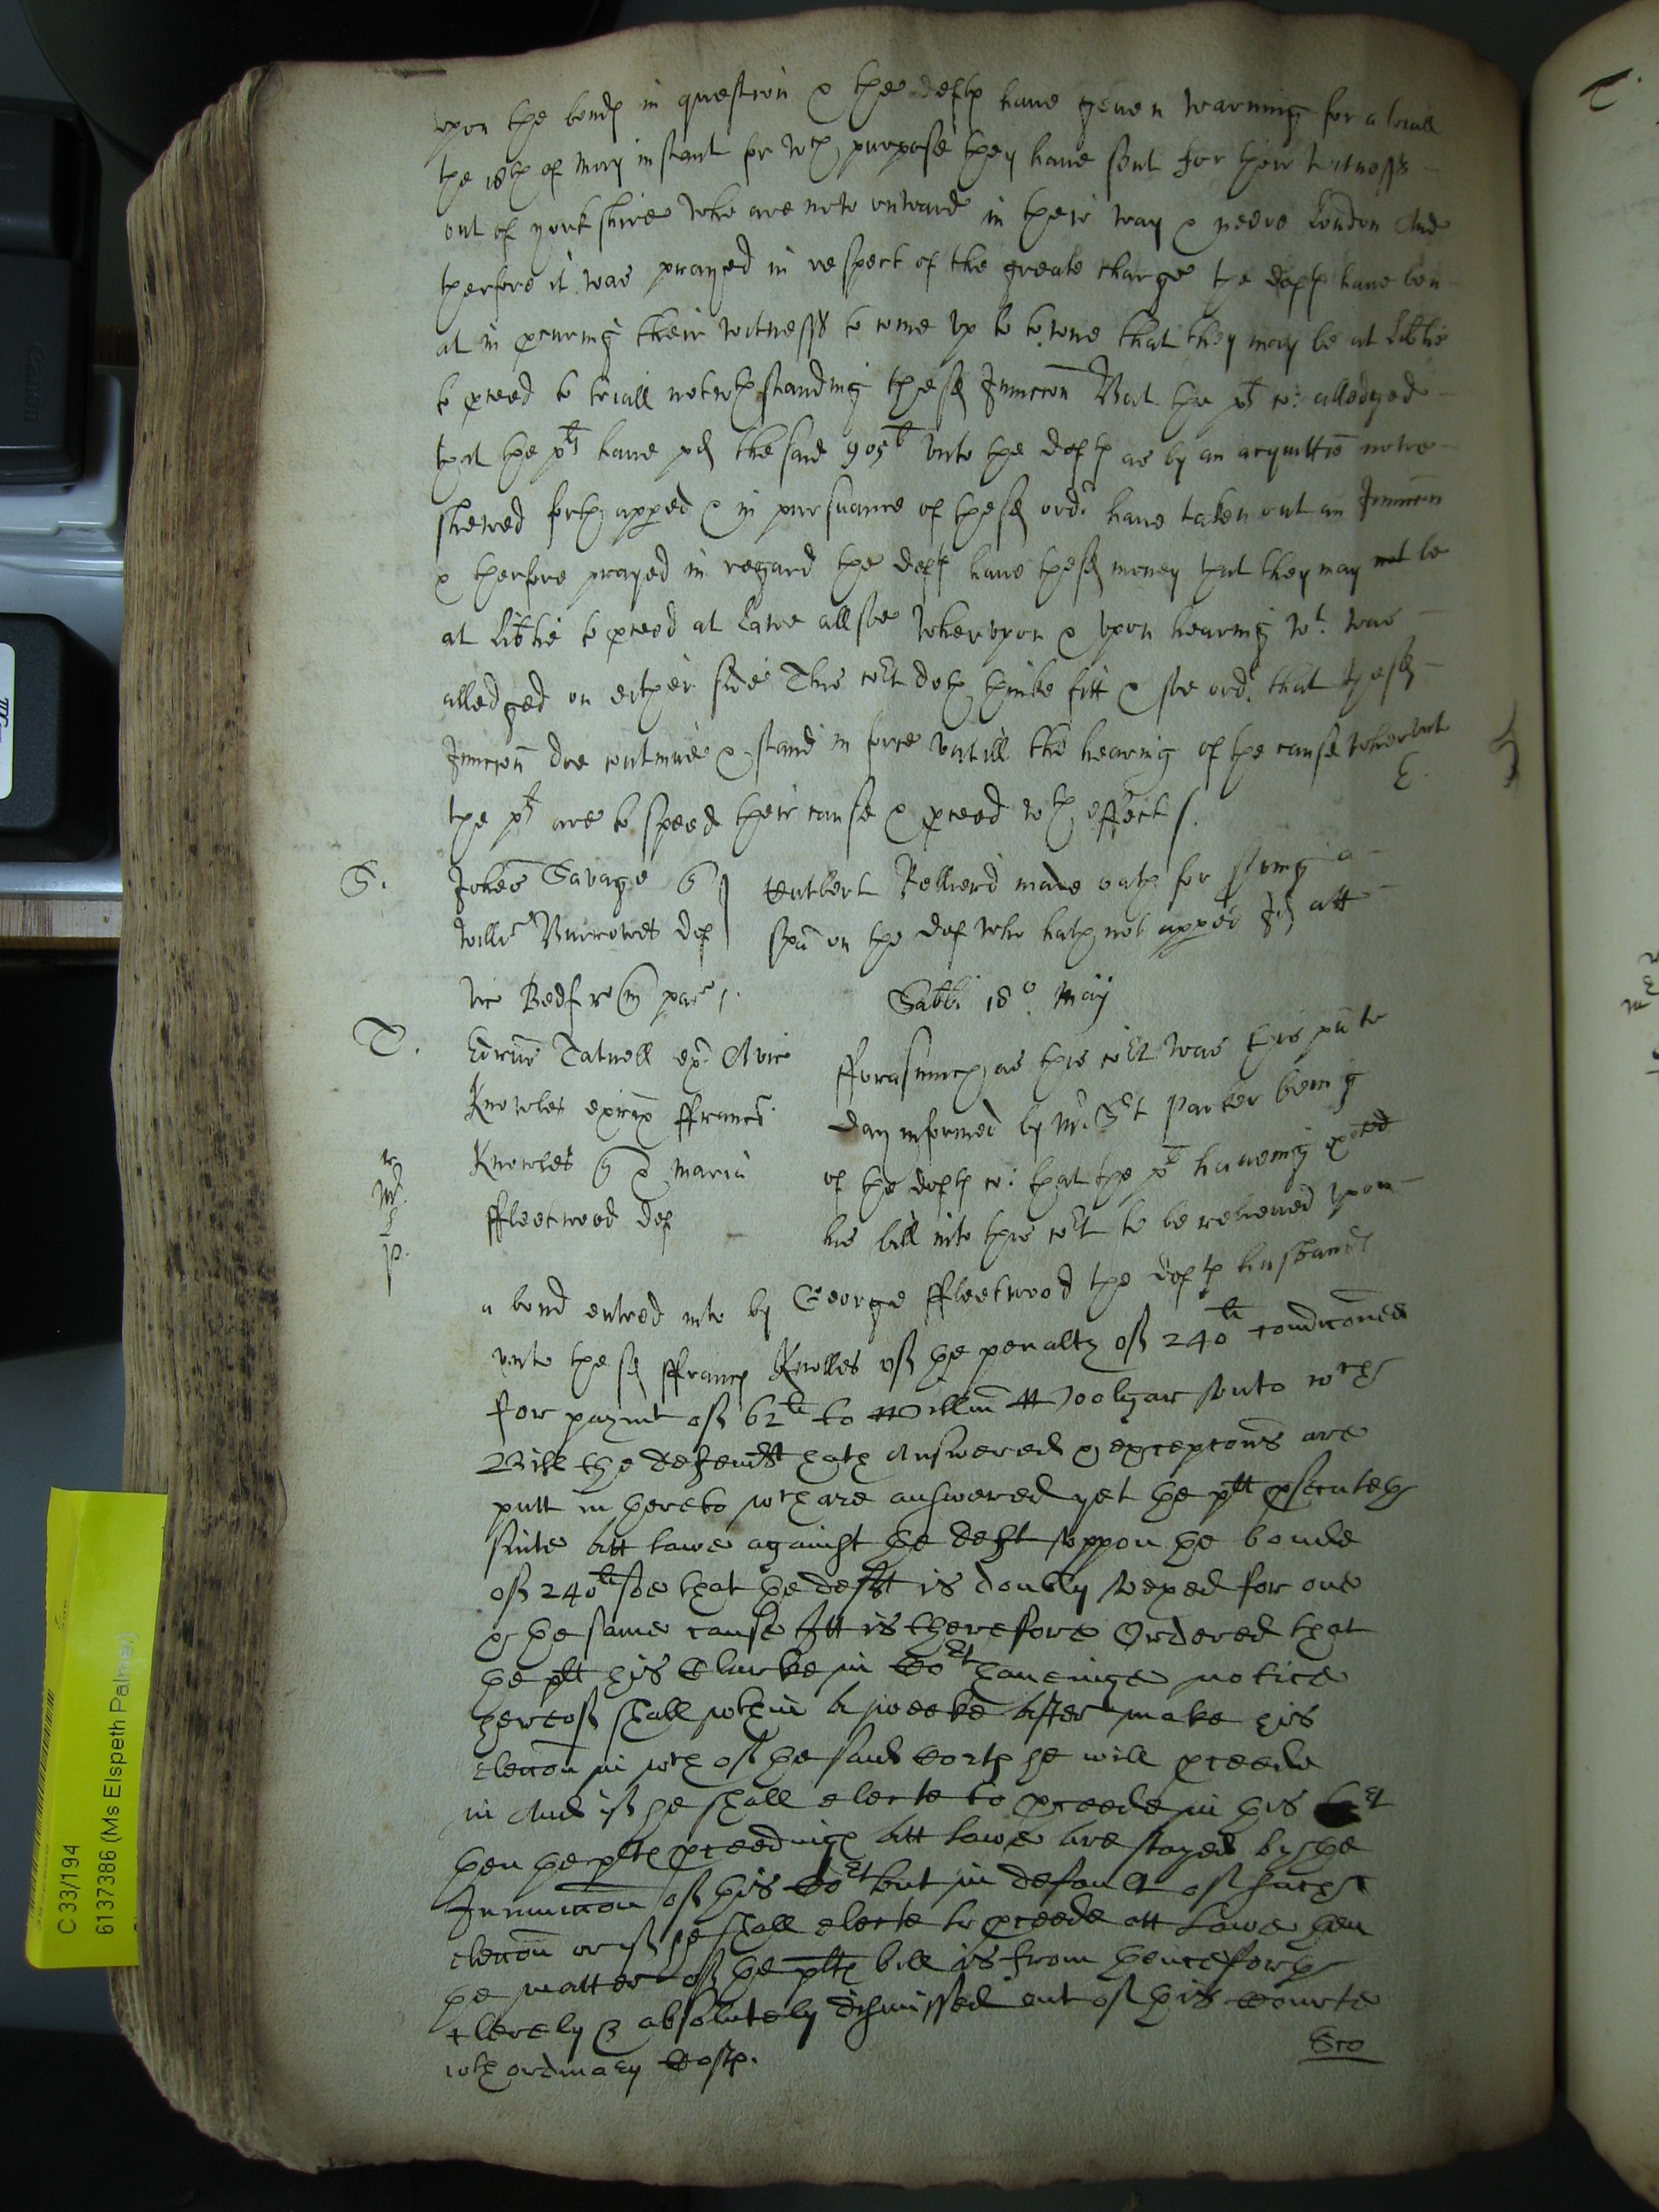 vpon the bond in question & the deftes haue geuen warning for a triall
the 18th of May instant for wch purpose they haue sent for their witnesses
out of yorkshire who are nowe onward in their way & neere London And
therfore it was prayed in respect of the greate charge the deftes haue ben
at in pcuring their witnesses to come vp to towne that they may be at libtie
to pceed to triall notwthstanding the sd Iniuncion But the plt co: alledged
that the plts haue pd the said 905li vnto the deftes as by an acquittce nowe
shewed forth appped & in pursuance of the sd ordr haue taken out an Iniuncion
& therfore prayed in regard the deftes haue the sd money that they may not be
at libtie to pceed at Lawe allsoe wherevpon & vpon hearing wt was
alledged on either side This cort doth thinke fitt & soe ordr that the sd
Iniuncion doe continue & stand in force vntill the hearing of the cause wherevnt
the plts are to speed their cause & pceed wth effect
S. Johes Savage q Cutbert made oath for srving a
Willms Burrowes def spa on the def who hath not apped Id att
vic Bedf re in pace
Sabbi 18o. Maij
T. Tatnell ex Avice fforasmuch as this cort was this pnte
Knowles execrix ffranc day informed by Mr Sert Parker being
Knowles q & Maria of the deftes co: that the plt haueing exhited
ffleetwood def his bill into this cort to be releeued vpon
a bond entred into by George ffleetwood the deftes husband
vnto the sd ffrancs Knolles of the penalty of 240li condiconed
for paymt of 62li to Willm Woolgar vnto wch
Bill the defendt hath Answered & excepcons are
putt in thereto wch are answered yet the plt psecuteth
suite att lawe against the deft vppon the bonde
of 240li soe that the deft is doubly vexed for one
& the same cause Itt is therefore Ordered that
the plt his Clarke in Cort haueinge notice
thereof shall wthin a weeke after make his
eleccon in wch of the said Corts he will pceede
in And if he shall electe to pceede in this Cort
then the plts pceedings att lawe are stayed by the
Iniunccon of this Cort but in default of such
eleccon or if he shall electe to pceede att Lawe then
the matter of the plts bill is from henceforth
clerely & absolutely dismissed out of this Courte
wth ordinary Costs.
C 33/194
6137386 (Ms Elspeth Palmer)
Canon